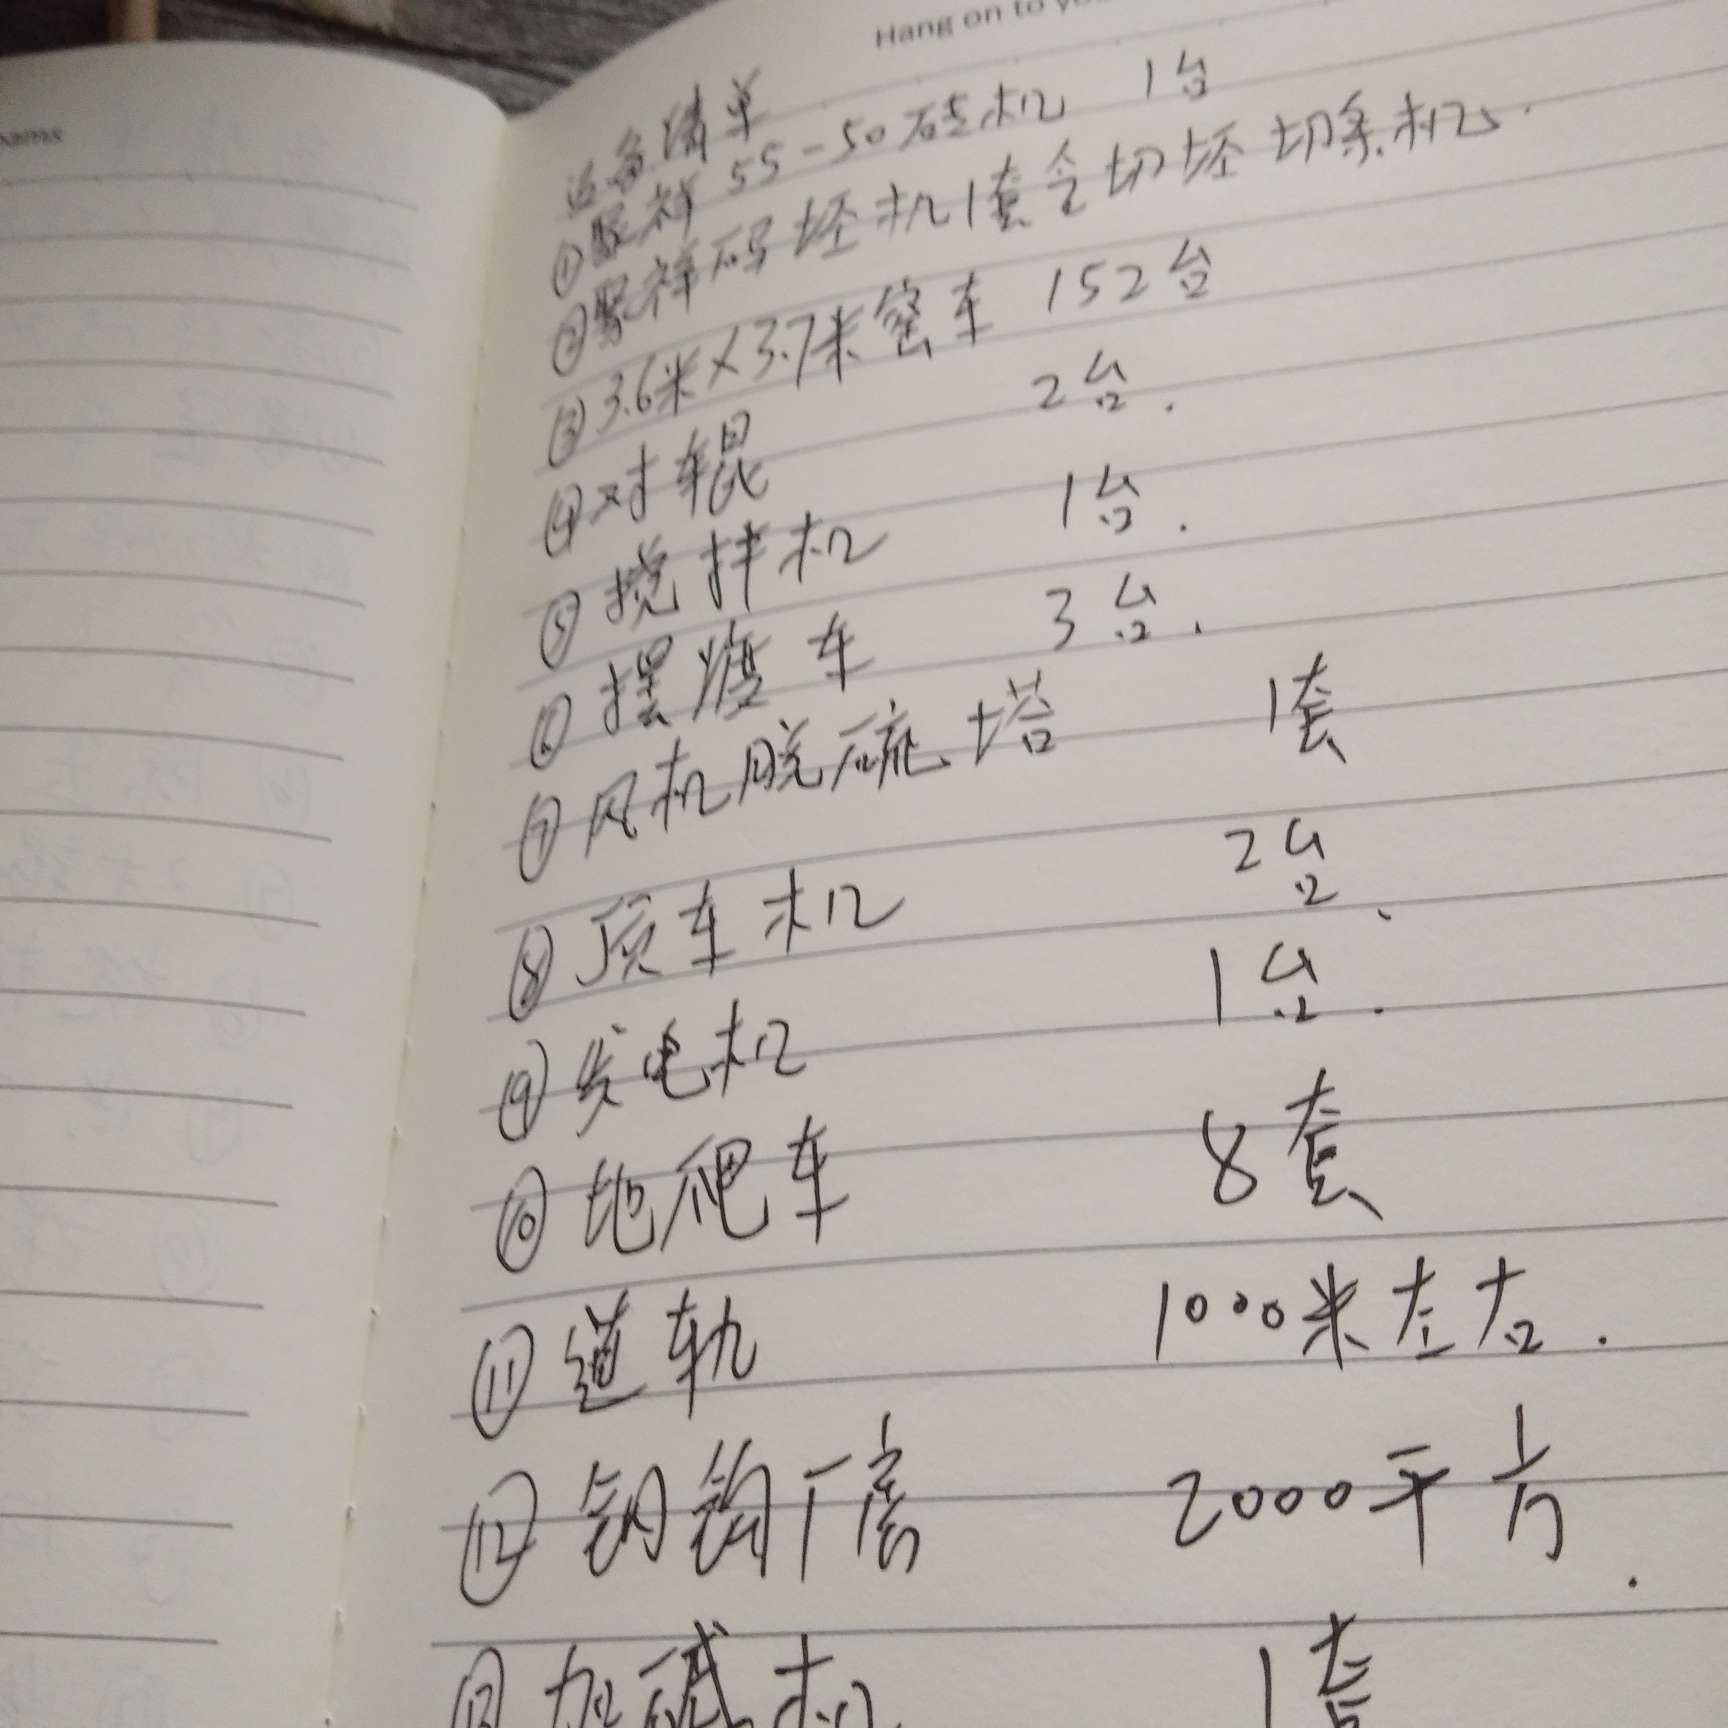 Hang on to yo
eams
设备清单
①聚祥 55-50砖机 1台
②聚祥码坯机1套含切坯切条机.
③3.6米×3.7米窑车 152台
④对辊 2台.
⑤搅拌机 1台.
⑥摆渡车 3台.
⑦风机脱硫塔 1套
⑧顶车机 2台、
⑨发电机 1台.
⑩地爬车 8套
⑪道轨 1000米左右.
⑫钢构厂房 2000平方.
⑬加碱机 1套